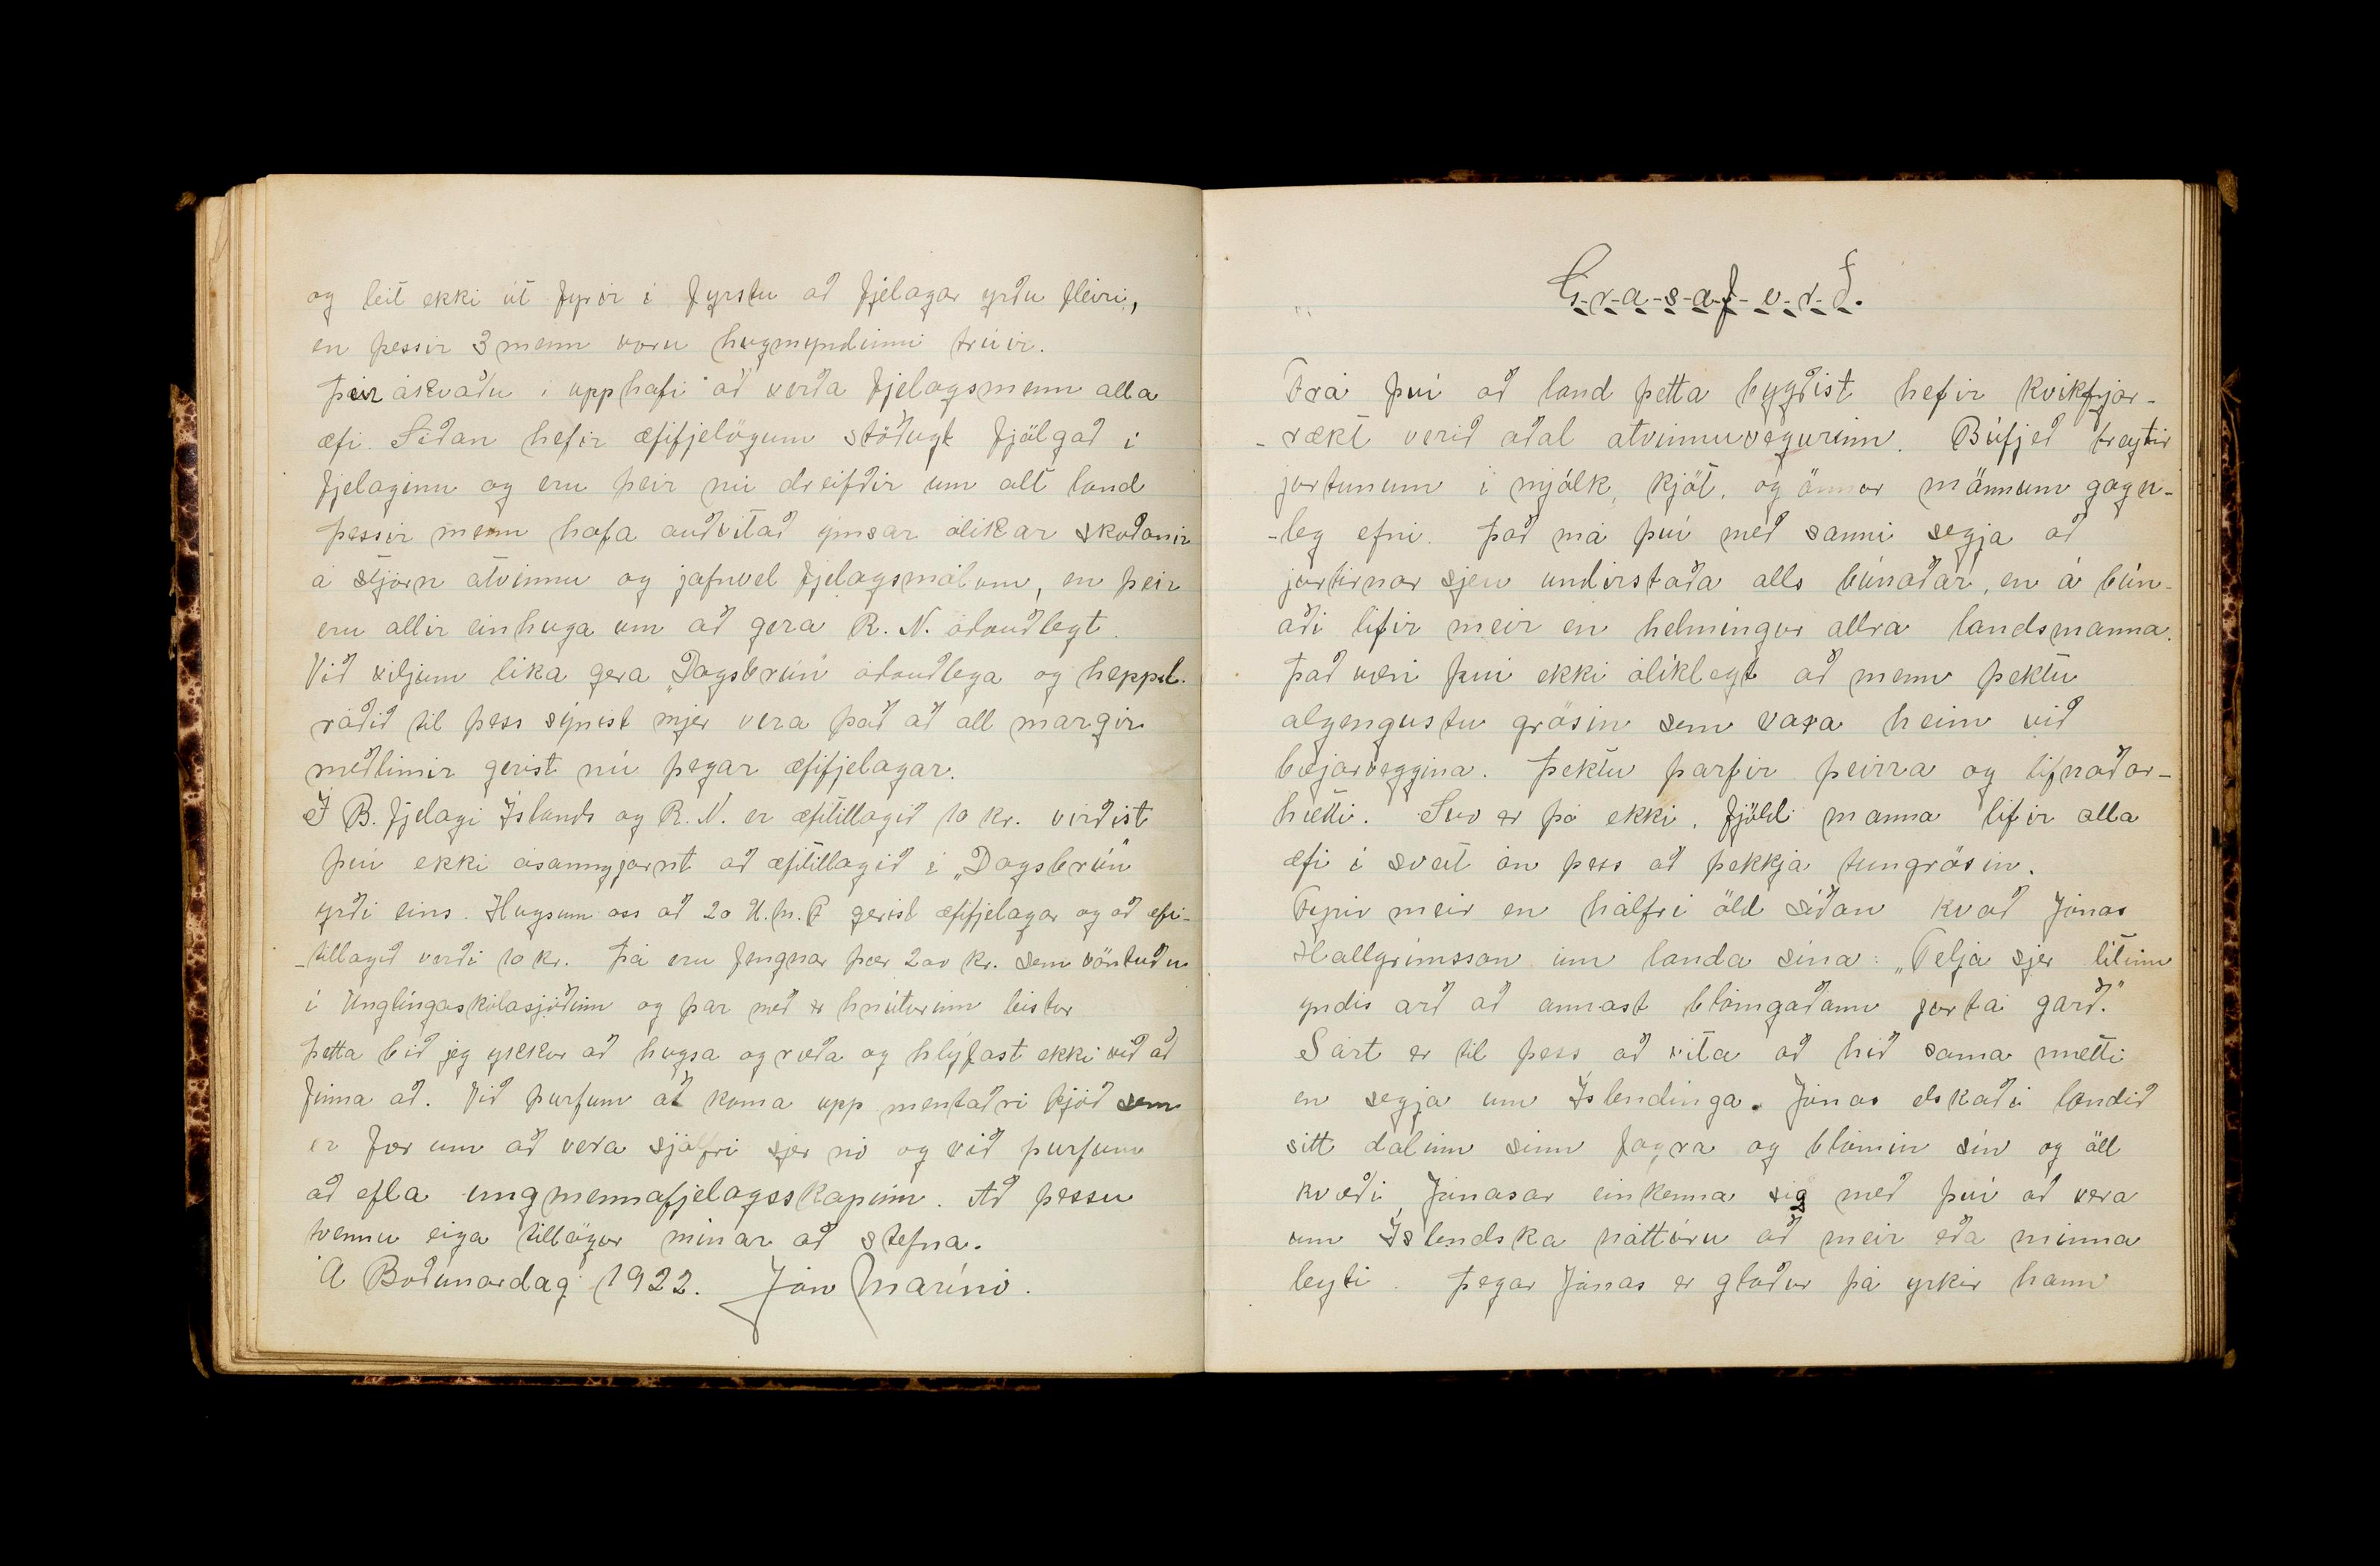 og leit ekki út fyrir í fyrstu að fjelagar yrðu fleiri,
en þessir 3 menn voru hugmyndinni trúir.
Þeir ákváðu í upphafi að verða fjelagsmenn alla
æfi. Síðan hefir æfifjelögum stöðugt fjölgað í
fjelaginu og eru þeir nú dreifðir um alt land
þessir menn hafa auðvitað ýmsar ólíkar skoðanir
á stjórn atvinnu og jafnvel fjelagsmálum, en þeir
eru allir einhuga um að gera R. N. ódauðlegt.
Við viljum líka gera „Dagsbrún" ódauðlega og heppil.
ráðið til þess sýnist mjer vera það að all margir
meðlimir gerist nú þegar æfifjelagar.
Í B. fjelagi Íslands og R. N. er æfitillagið 10 kr. virðist
því ekki ósanngjarnt að æfitillagið í „Dagsbrún"
yrði eins. Hugsum oss að 20 U.M.F gerist æfifjelagar og að æfi-
-tillagið verði 10 kr. Þá eru fengnar þær 200 kr. sem vöntuðu
í Unglingaskólasjóðinn og þar með er hnúturinn leistur
Þetta bið jeg ykkur að hugsa og ræða og hlýfast ekki við að
finna að. Við þurfum að koma upp mentaðri þjóð sem
er fær um að vera sjálfri sjer nó og við þurfum
að efla ungmennafjelagsskapinn. Að þessu
tvennu eiga tillögur mínar að stefna.
Á Boðunardag 1922. Jón Marinó.
G-r-a-s-a-f-e-r-ð.
Frá því að land þetta bygðist hefir kvikfjár-
-rækt verið aðal atvinnuvegurinn. Búfjeð breytir
jurtunum í mjólk, kjöt, og önnur mönnum gagn-
-leg efni. Það má því með sanni segja að
jurtirnar sjeu undirstaða alls búnaðar, en á bún-
aði lifir meir en helmingur allra landsmanna.
Það væri því ekki ólíklegt að menn þektu
algengustu grösin sem vaxa heim við
bæjarveggina. Þektu þarfir þeirra og lifnaðar-
hætti. Svo er þó ekki, fjöldi manna lifir alla
æfi í sveit án þess að þekkja túngrösin.
Fyrir meir en hálfri öld síðan kvað Jónas
Hallgrímsson um landa sína: „Telja sjer lítinn
yndis arð að annast blómgaðann jurta garð."
Sárt er til þess að vita að hið sama mætti
en segja um Íslendinga. Jónas elskaði landið
sitt dalinn sinn fagra og blómin sín og öll
kvæði Jónasar einkenna sig með því að vera
um Íslendska náttúru að meir eða minna
leyti. Þegar Jónas er glaður þá yrkir hann